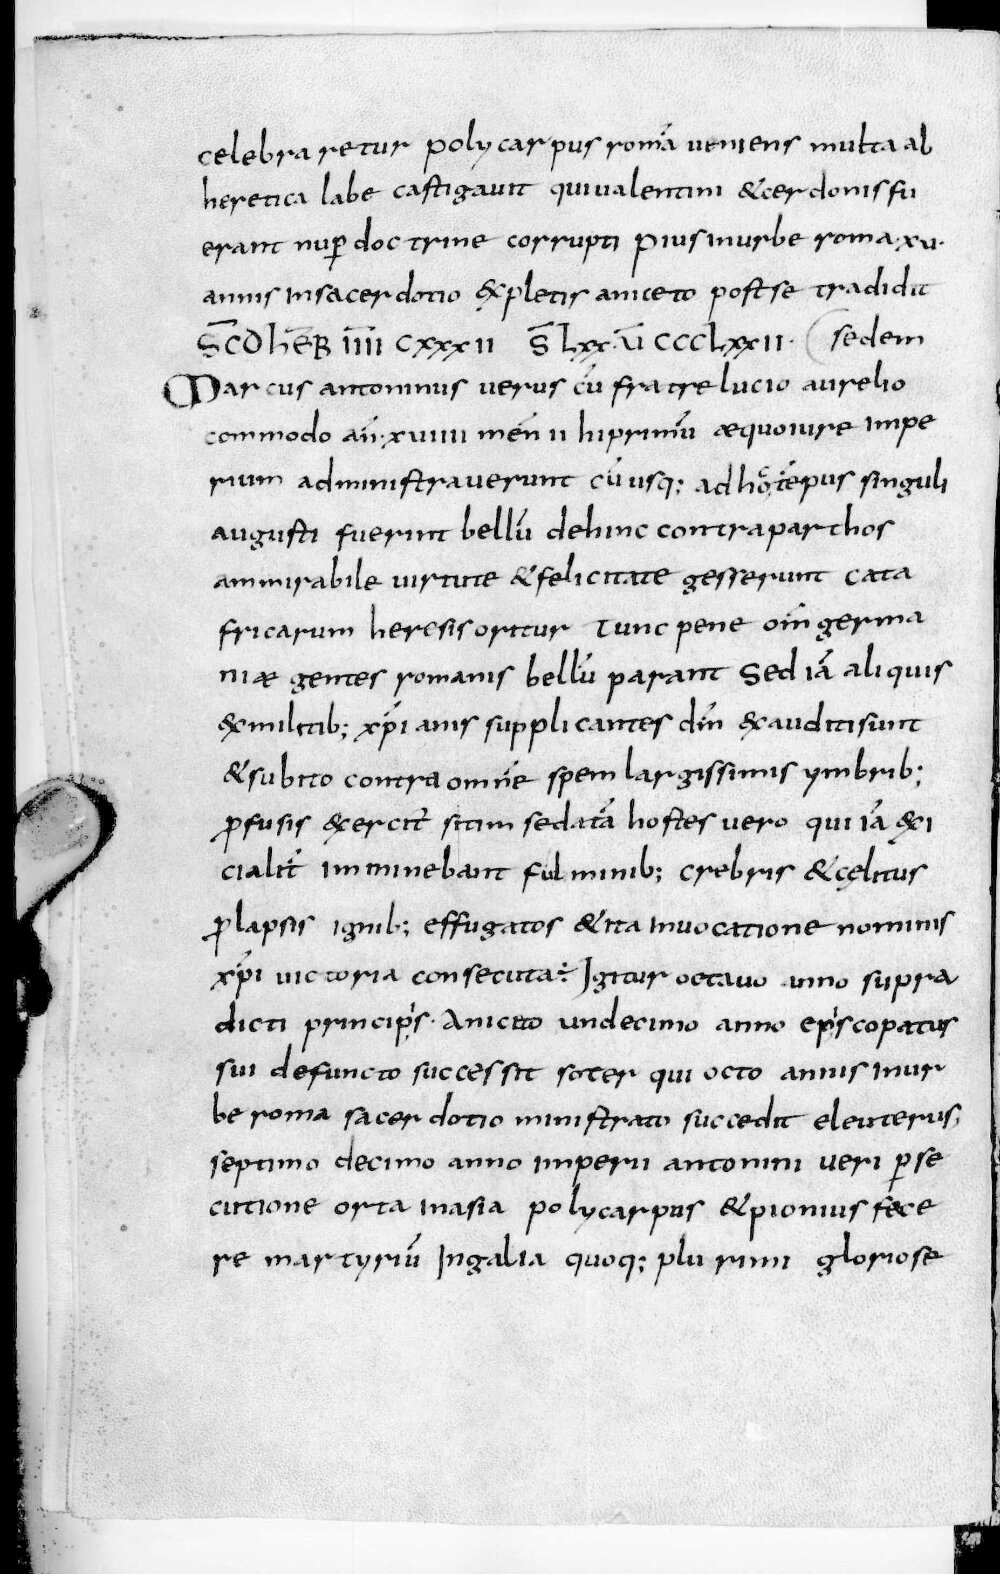 celebraretur polycarpus romā veniens multa ab
heretica labe castigavit qui valentini & cerdonis fu
erant nuꝑ doctrine corrupti pius in urbe roma ·xv·
annis in sacerdotio &pletis aniceto post se tradidit
S̄CDHEB̄ IIII CXXXII S̄ LXX V̄ CCCLXXII· sedem
Marcus antoninus verus cū fratre lucio aurelio
commodo añ· xviiii meñ ii hi primū æquo iure impe
rium administraverunt cū usq; ad hoc tēpus singuli
augusti fuerint bellū dehinc contra parthos
ammirabile virtute & felicitate gesserunt cata
fricarum heresis oritur Tunc pene om̄ germa
niæ gentes romanis bellū parant Sed iā aliquis
&militib; xp̄ianis supplicantes dn̄m &auditi sunt
& subito contra omnē spem largissimis ymbrib;
ꝓfusis &ercit̄ sitim sedatā hostes vero qui iā &i
cialit̄ imminebant fulminib; crebris & cęlitus
ꝓlapsis ignib; effugatos & ita invocatione nominis
xp̄i victoria consecuta ÷ Igitur octavo anno supra
dicti principis· Aniceto undecimo anno episcopatus
sui defuncto successit soter qui octo annis in ur
be roma sacerdotio ministrato succedit eleuterus,
septimo decimo anno imperii antonini veri ꝑse
cutione orta in asia polycarpus & pionius fece
re martyriū In galia quoq; plurimi gloriose